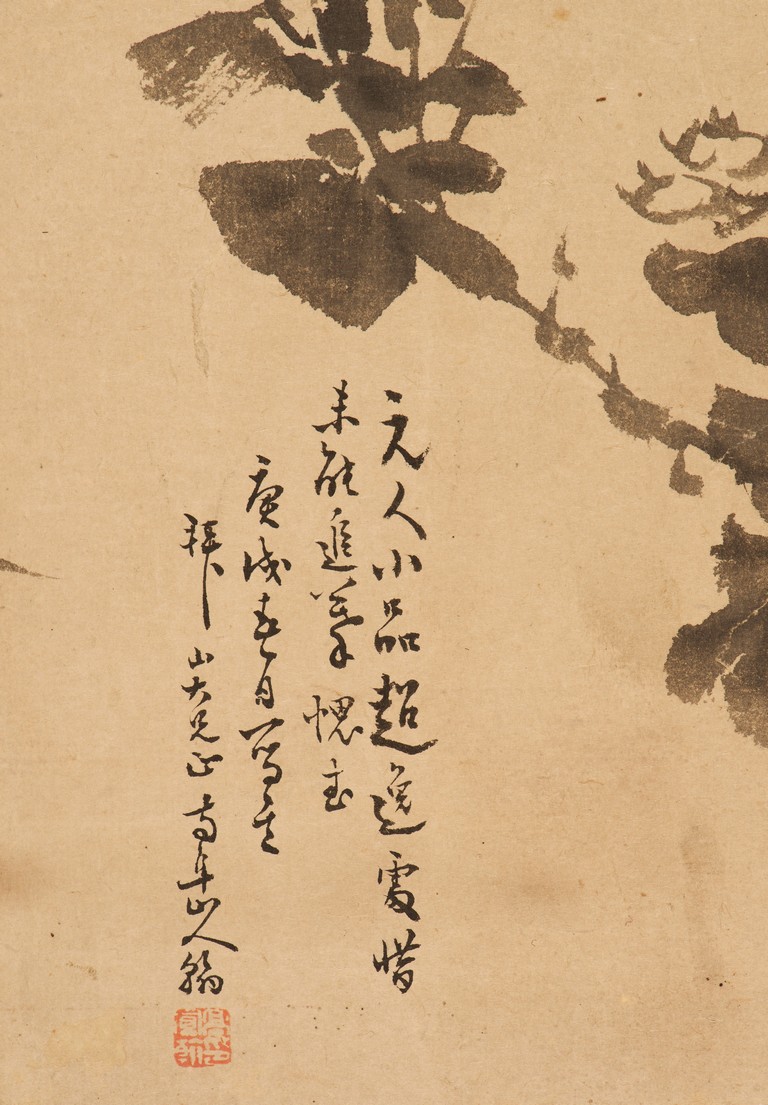 元人小品超逸處惜
未能追摹愧愧
庚戌春日寫於
拜山大兄正 南阜山人翰